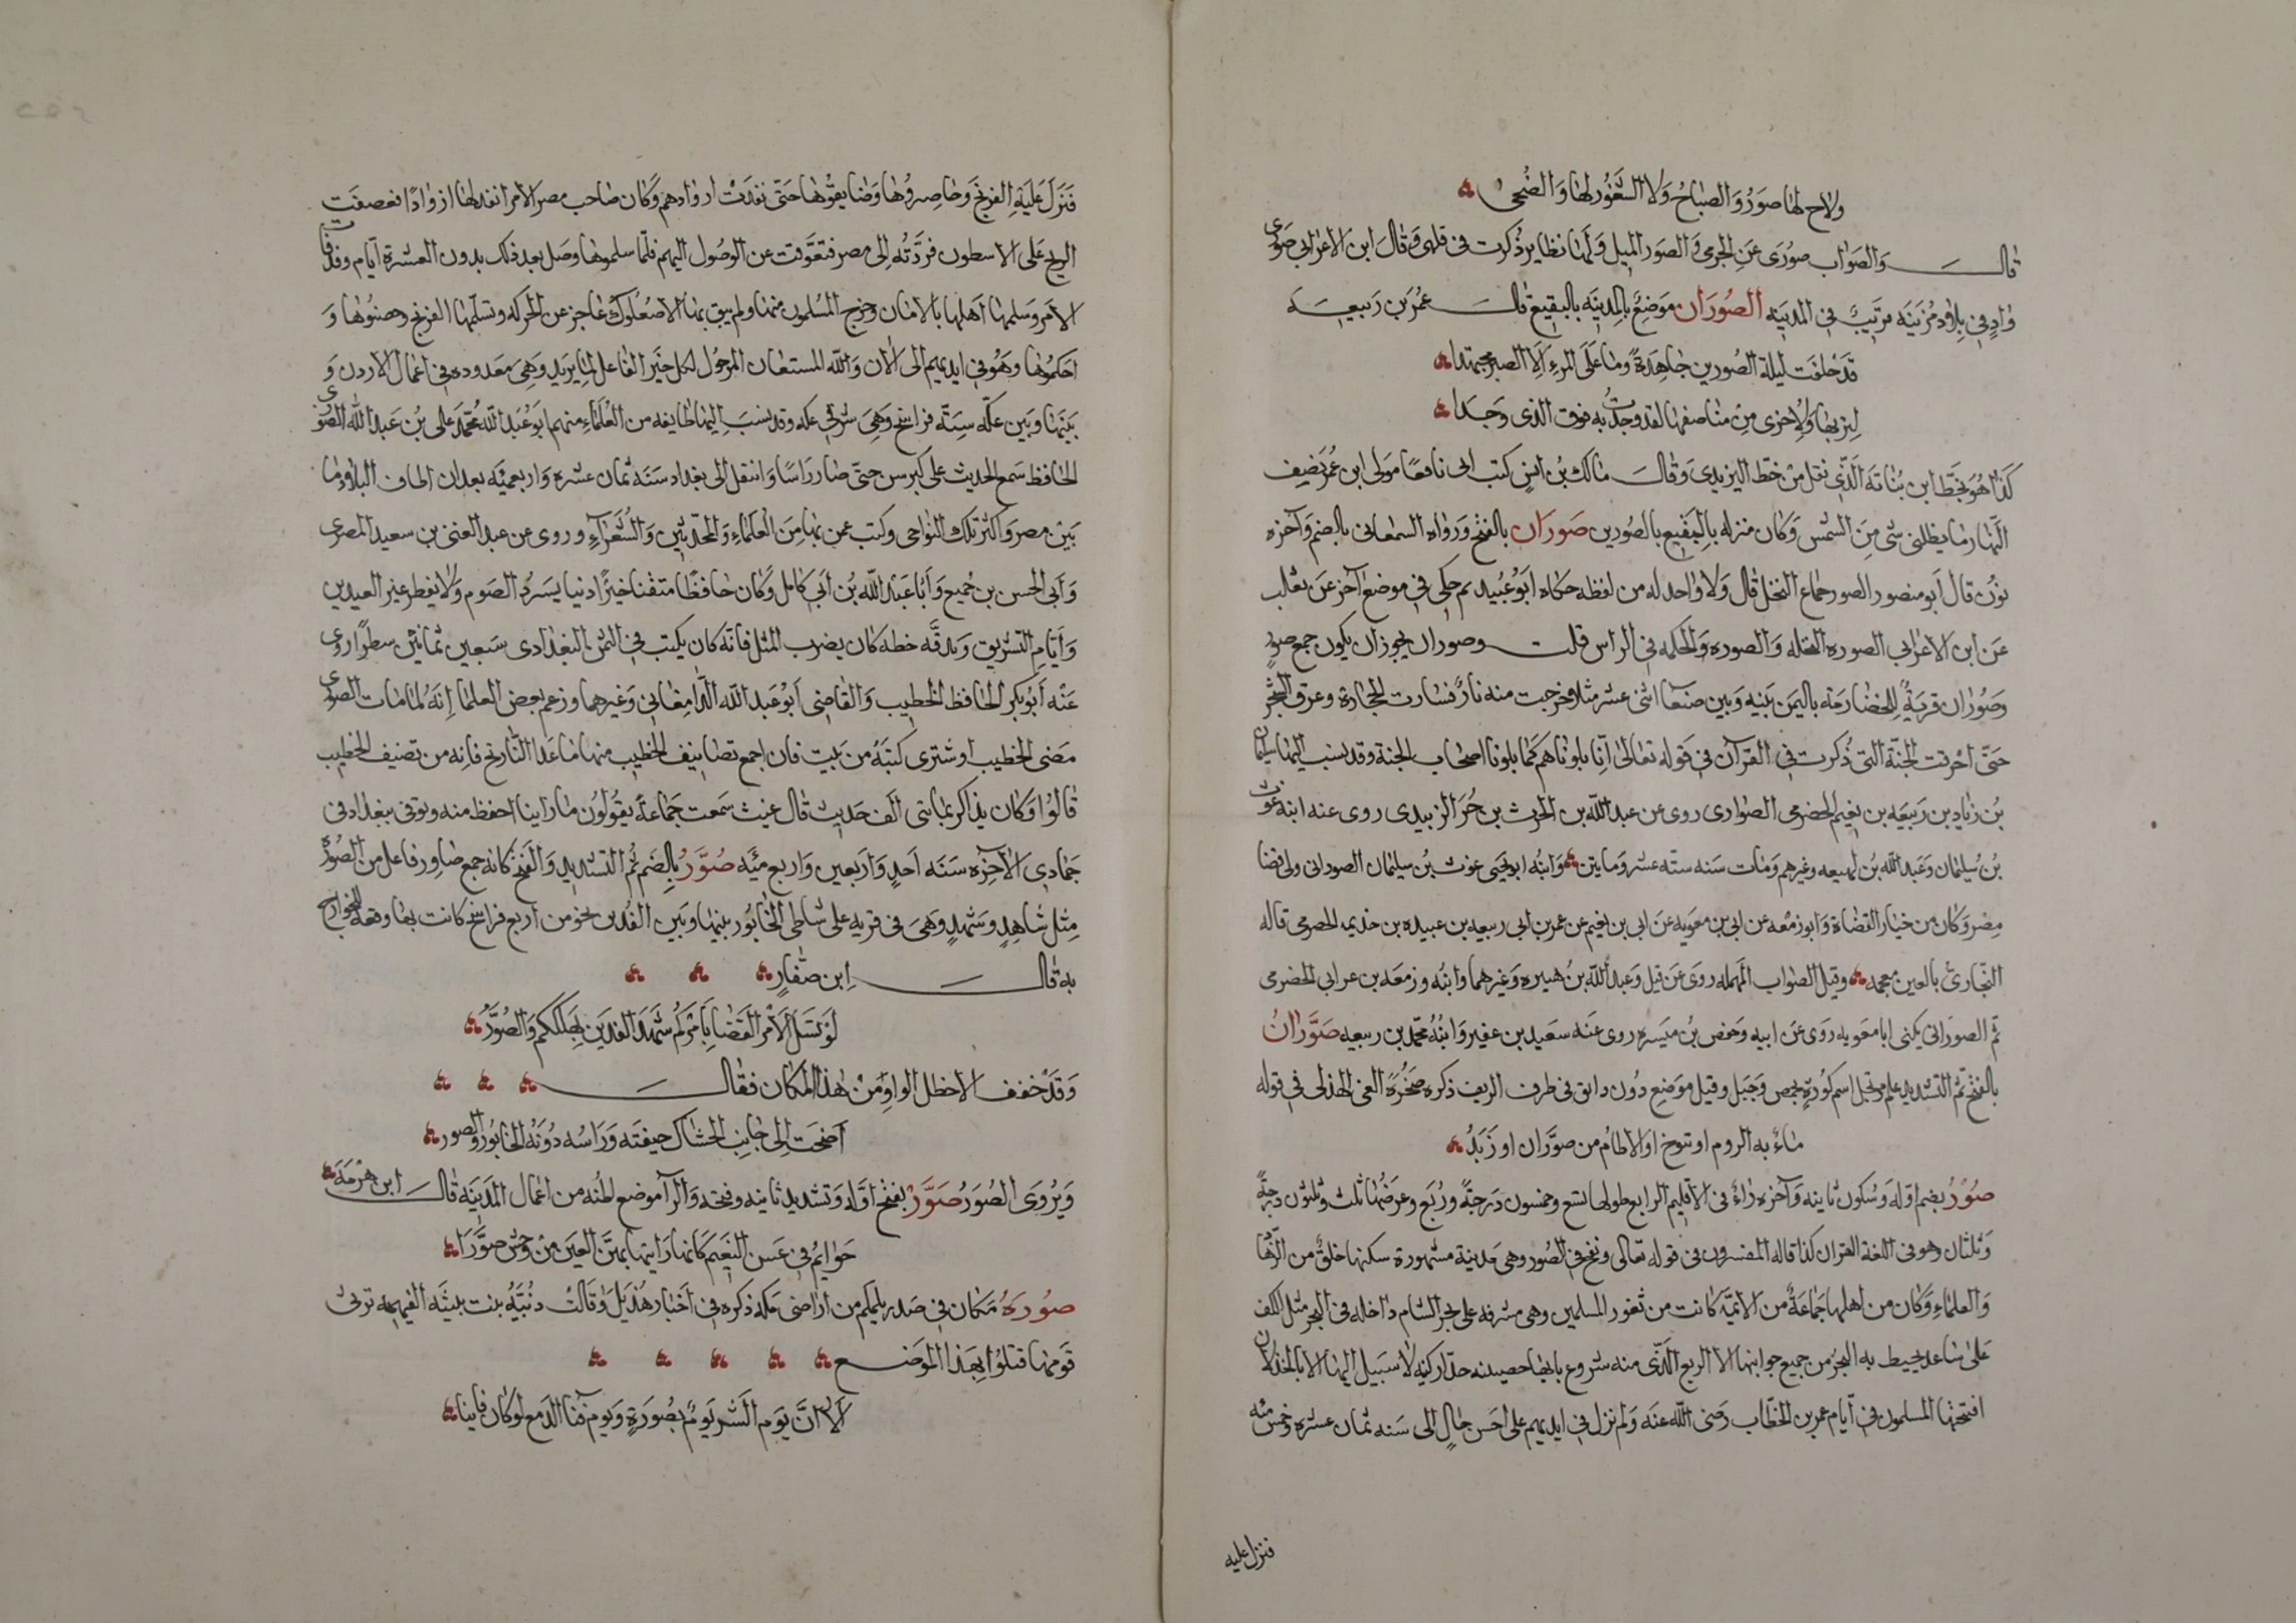 ولاح لها صوَرُ وَالصباحُ وَلاح الشغُور لها وَالضُحى
قالــــ وَالصَوَاب صوُرَى عَنِ الجرمى وَالصَوَر الميل وَلهَا نظاير ذُكرت فى قلهى وَقالَ ابن الاعرابى صَوَرى
وَادٍ فى بلاد مُزَينَه قرَيبٌ فى المدَينَه الصُورَان موَضِعٌ بالمِدينَه بالبقِيع قالــــ عمُرَ بن رَبيعَــه
قدَ حلفت ليلَة الصُورين جَاهدَةً وَمَا عَلَى المرءِ اِلّا الصبر مجتهدا
لِتربهَا وَلِاخرى مِنْ مناصفهَا لقد وَجدْتُ به فوق الذى وَجــدا
كَذا هُوَ بخَطِ ابن نبُاتَه الَذّى نقل مِنْ خط اليزيدى وَقالَ مالك بُن انسٍ كنت اتى نافعًا مَولى ابن عُمرَ نِصف
النَّهار مَا يظلنى شئ مِنَ الشمس وَكان منزله بِالبَقيع بالصُورين صَورَان بالفتح وَرواه السمعانى بالضم وَآخره
نوُن قال اَبو منصور الصور جماع النخل قال وَلا وَاحد له من لفظه حكاه ابَوْ عُبُيد ثم حكى فى موضع آخر عَن ثعلب
عَن ابن الاعرابى الصوره النخله وَالصوره وَالحكه فى الراس قلتـــ وصوران يجوز ان يكون جمع صور
وَصَوْران قريَةٌ للِحضَارمَه باليمَن بيَنه وَبين صنعَا اثنى عشر مثلا وخرجت منه نارٌ فسَارت الحجَارة وعروق الشجر
حَتّى احرقت الجنَّة التى ذُكرت فى القرآن فى قوله تعَالى اِنّا بلونَاهم كَما بلونا اصحَاب الجنة وقد ينسب اليهَا سليمان
بُن زياد بن ربَيعَه بن نعيم الحضرمى الصوارى روى عن عبد اللّه بن الحرث بن جُزَء الزبيدى روى عنه ابنه غوث
بُن سُليمَان وَعَبد اللّه بُن لهيعه وغيرهم وَمَات سَنه ستّه عشر وَمايتين وَابنُه ابو يحيى غوث بُن سليمَان الصورانى ولى قضا
مِصْر وَكان من خيَار القضَاة وَابو زمْعه عن ابى بن معويه عن ابى بن نعيم عن عمر بن ابى ربيعه بن عبيده بن خذيمه الحضرمى قاله
البخارى بالعين معجمه وقيل الصَواب المهمله روَى عَن قيل وَعبد اللّه بن هبيره وَغيرهما وابنُه وزمعَه بن عرابى الحضرمى
ثمّ الصوَرانى يكنى ابا معَويه روَى عَن ابيه وَحفص بُن ميَسره روى عَنه سَعيد بن عفير وَابنُهُ محمّد بن ربيعه صَوَّرانُ
بالفتح ثم التشديد علم مرتجل اسم كوُرةٍ بحمِص وَجَبل وقيل موَضِع دُون دابق فى طرف الريف ذكره صَخْرُ الغى الهذلى فى قوله
مَاءٌ به الروم او تنوخ او الاطامُ من صوَّران او زَبَدُ
صُوْرُ بضم اوّله وَسُكون ثانيه وَآخره رَاءٌ فى الاقليم الرابع طولها تسع وخمسون دَرجَةً وَرُبع وعرَضُها ثلث وثلثون درجةً
وَثلثان وهو فى اللغة القرن كذا قاله المفسرون فى قوله تعَالى وَنفخ فى الصُور وهى مَدينة مشهورة سكنها خلقٌ من الزهّاد
وَالعلمَاءِ وَكان من اهلهَا جَماعَةٌ من الائمّة كانت من ثغور المسلمين وهى مشرفه على بحر الشام داخله فى البحر مثل الكف
عَلى سَاعد يحيط به البحَر من جميع جوانبها الا الربع الَّذى منه شروع بابها حصينه جدّا ركينه لا سَبيل اليهَا الا بالخذلان
افتتحهَا المسلمون فى ايَام عمر بن الخطاب رَضى اللّه عَنه وَلم تزل فى ايديهم على احَسن حَالٍ الى سَنه ثمان عشره وخمس مئه
فنزل عليه
فَنَزَل عَليَهِ الفرنج وحاصِرُوهَا وَضَايقوْهَا حَتّى نفدَت ازوَادهم وَكان صَاحب مصر الآمر انفد لهَا ازوَادًا فعصفَت
الريح عَلى الاسطول فردَّتهُ اِلى مصر فتعوَّقت عن الوصُول اليهم فلمّا سلموهَا وصَل بعد ذلك بدون العشرة ايَّام وقد فات
الامَر وسَلمهَا اَهلهَا بالامَان وخرج المسُلمون منهَا ولم يبق بهَا الا صُعلوك عاجز عن الحركه وتسلّمهَا الفرنج وحصّنوُهَا وَ
احكموُهَا وهَوْ فى ايديهم الى الان وَاللّه المستعَان المرجوُ لكل خيَر الفاعل لمِا يريد وَهىَ معَدوده فى اعمال الاردن وَ
بيَنهَا وبَين عكّه سِتَّه فراسخ وَهىَ شرقى عكه وقد ينسبَ اليهَا طايفه من العُلماءِ منهم ابَو عَبَد اللّه مُحّمدَ على بُن عَبد اللّه الصُورى
الحَافظ سَمع الحَديث على كبر سن حتّى صَار رَاسًا وَانتقل الى بغدَاد سَنَه ثمان عشره وَاربعميَه بعد ان اطاف البلاد مَا
بَيْن مصر وَاكثر تلك النوَاحى وكتب عمن بهَا مِنَ العلمَاءِ وَالمحدّثيَن وَالشُعَرآءِ وروى عن عبد الغنى بن سعيد المصرى
وَاَبى الحسن بن جُميع وَاَبَا عَبد اللّه بُن اَبىِ كامل وَكان حَافظًا متقنَا خيرًا دينا يسَرد الصَوم وَلا يفطر غير العيدين
وَاَيّامِ التشريق وَبدقَّه خطه كان يضرب المثل فانَّه كان يكتب فى الثمن البغدَادى سَبعين ثمانيَن سطرًا روى
عَنْه اَبوُ بكر الحَافظ الخطيب وَالقَاضى اَبوْ عَبد اللّه الدَّامغانى وَغيرهما وزعم بعض العلما اِنَهُ لمَا مَات الصورى
مَضى الخطيب اوشترى كتبَهُ من بَيت فان اجمع تصَانيف الخطيب منهَا مَا عَدا التَّاريخ فانه من تصنيف الخطيب
قالوُا وَكان يذاكر بمَايتى الَف حَديث قال غيث سَمعت جَماعَةً يقوُلوُن مَا رَاينا احفظ منه وتوفى ببغدَاد فى
جَمادى الآخِرَه سَنَه اَحدٍ وَاَربَعين وَاربع ميَّه صُوَّرُ بالِضَم ثُم التشديد وَالفتح كانه جمع صَاوِر فاعل من الصُوَره
مثِل شَاهِدٍ وشَهّدٍ وَهىَ فى قريه على شاطى الخَابُور بينهَا وبَين الفُدين نحو من اربع فراسخ كانت بهَا وقعة للخوارج
به قالـــــ اِبن صَفّارٍ
لوَ تسَئل الاَمر القَضَايا باَمرَكم شَهِدَ الفدَين بهُلككم وَالصُوَّرُ
وَقدَ خفف الاخطل الواوِ مْن هٰذا المكان فقالــــ
اَضحَت الِى جَانِب الحشاك جيفَته وَرَاسُه دُونَهُ الخَابُور وَالصور
وَيرُوى الصُوَرُ صَوَّرُ بفتح اوَّله وَتشديد ثانيه وفتحه وَالرآء موضع اظُنه من اعمال المَدينَه قالــــ ابن هَرْمَة
حَوَائمُ فى عَسن النعَيمَ كَانهَا رَايتهَا بهنَّ العينَ مْن وحَش صَوَّرَا
صُورَةُ مَكان فى صَدر يلملم من ارَاضى مكه ذكره فى اَخبَار هذيَل وَقالت دنُبَيَّه بنت بيثَه الفهميه ترثى
قَومهَا قتلوُا بهِذَا الموَضــع
اَلا اِنَّ يوَم الشر يوَمٌ بصُورَةٍ وَيوَم فنَآء الدَمع لوَ كان فانيا